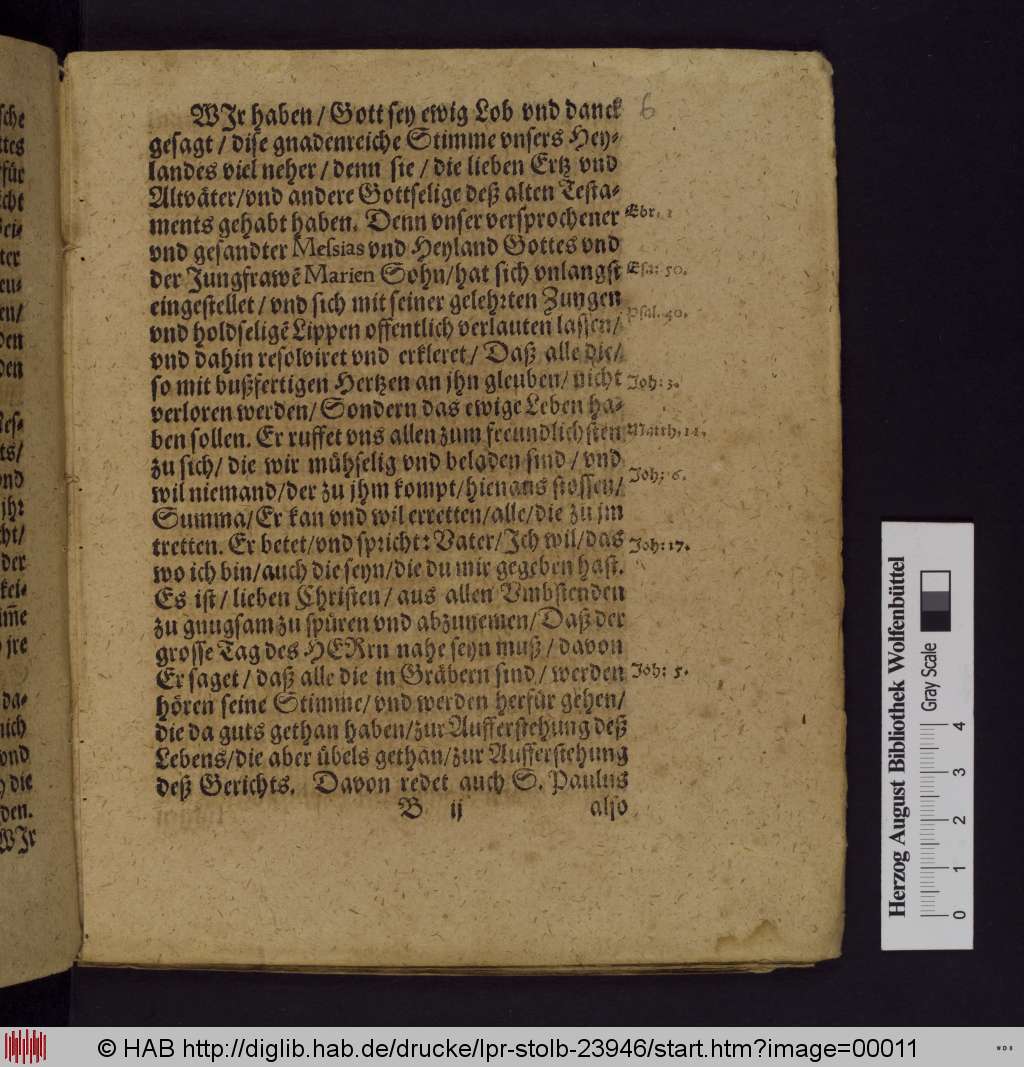 sche
ttes
für
icht
Bei-
ter
eu-
en/
den
den
Mes-
ts/
vnd
jhr
cht/
der
kei-
im̃e
jre
da-
nich
vnd
die
den.
WIr
6
WIr haben / Gott sey ewig Lob vnd danck
gesagt / dise gnadenreiche Stimme vnsers Hey-
landes viel neher / denn sie / die lieben Ertz vnd
Altväter/vnd andere Gottselige deß alten Testa-
ments gehabt haben. Denn vnser versprochener Ebr. 1
vnd gesandter Messias vnd Heyland Gottes vnd
der Jungfrawẽ Marien Sohn/hat sich vnlangst Esa: 50.
eingestellet / vnd sich mit seiner gelehrten Zungen
vnd holdseligẽ Lippen offentlich verlauten lassen/ Psal.
vnd dahin resolviret vnd erkleret / Daß alle die/
so mit bußfertigen Hertzen an jhn gleuben/ nicht Joh: 3.
verloren werden/ Sondern das ewige Leben ha-
ben sollen. Er ruffet vns allen zum freundlichsten Matth. 11.
zu sich/ die wir mühselig vnd beladen sind / vnd
wil niemand/der zu jhm kompt/hienaus stossen/ Joh: 6.
Summa/Er kan vnd wil erretten/alle/die zu jm
tretten. Er betet/vnd spricht: Vater/Ich wil/das Joh: 17.
wo ich bin/auch die seyn/die du mir gegeben hast.
Es ist / lieben Christen / aus allen Vmbstenden
zu gnugsam zu spüren vnd abzunemen/ Daß der
grosse Tag des HERrn nahe seyn muß / davon
Er saget / daß alle die in Gräbern sind / werden Joh: 5.
hören seine Stimme/ vnd werden herfür gehen/
die da guts gethan haben/zur Aufferstehung deß
Lebens/die aber übels gethan/zur Aufferstehung
deß Gerichts. Davon redet auch S. Paulus
B ij also
Herzog August Bibliothek Wolfenbüttel
Gray Scale
0 1 2 3 4
© HAB http://diglib.hab.de/drucke/lpr-stolb-23946/start.htm?image=00011